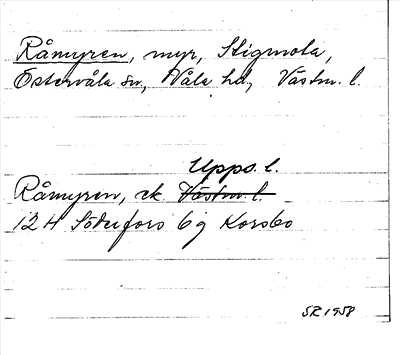 Råmyren, myr, Stigmola,
Östervåla sn, Våla hd, Västm. l.
Upps. l.
Råmyren, ek. Västm. l.
12 H Söderfors 6 g Korsbo
SR 1958